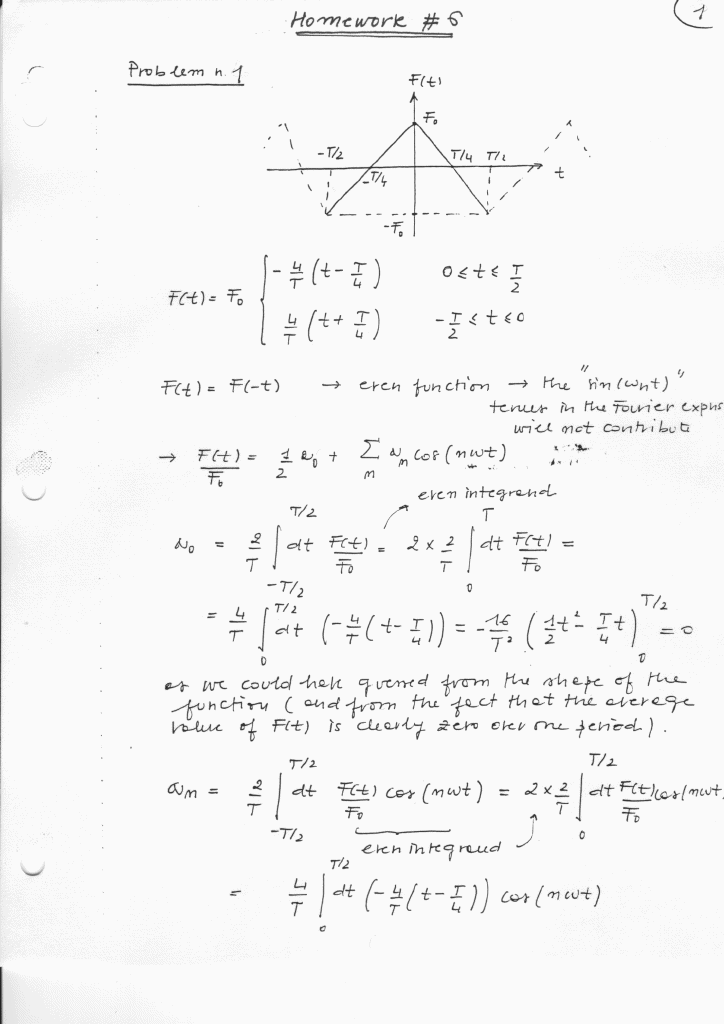 Homework # 6
1
Problem n. 1
F(t)
F₀
-T/2
T/4
T/2
-T/4
t
-F₀
F(t) = F₀ { -4/T (t - T/4)    0 ≤ t ≤ T/2
4/T (t + T/4)    -T/2 ≤ t ≤ 0
F(t) = F(-t) → even function → the "sin(ωnt)"
terms in the Fourier expns
will not contribute
→ F(t)/F₀ = 1/2 a₀ + Σ_n a_n cos(nωt)
even integrand
a₀ = 2/T ∫_{-T/2}^{T/2} dt F(t)/F₀ = 2 × 2/T ∫_0^T dt F(t)/F₀ =
= 4/T ∫_0^{T/2} dt (-4/T (t - T/4)) = -16/T² (1/2 t² - T/4 t)_0^{T/2} = 0
as we could have guessed from the shape of the
function (and from the fact that the average
value of F(t) is clearly zero over one period).
a_n = 2/T ∫_{-T/2}^{T/2} dt F(t)/F₀ cos(nωt) = 2 × 2/T ∫_0^{T/2} dt F(t)/F₀ cos(nωt
even integrand
= 4/T ∫_0^{T/2} dt (-4/T (t - T/4)) cos(nωt)